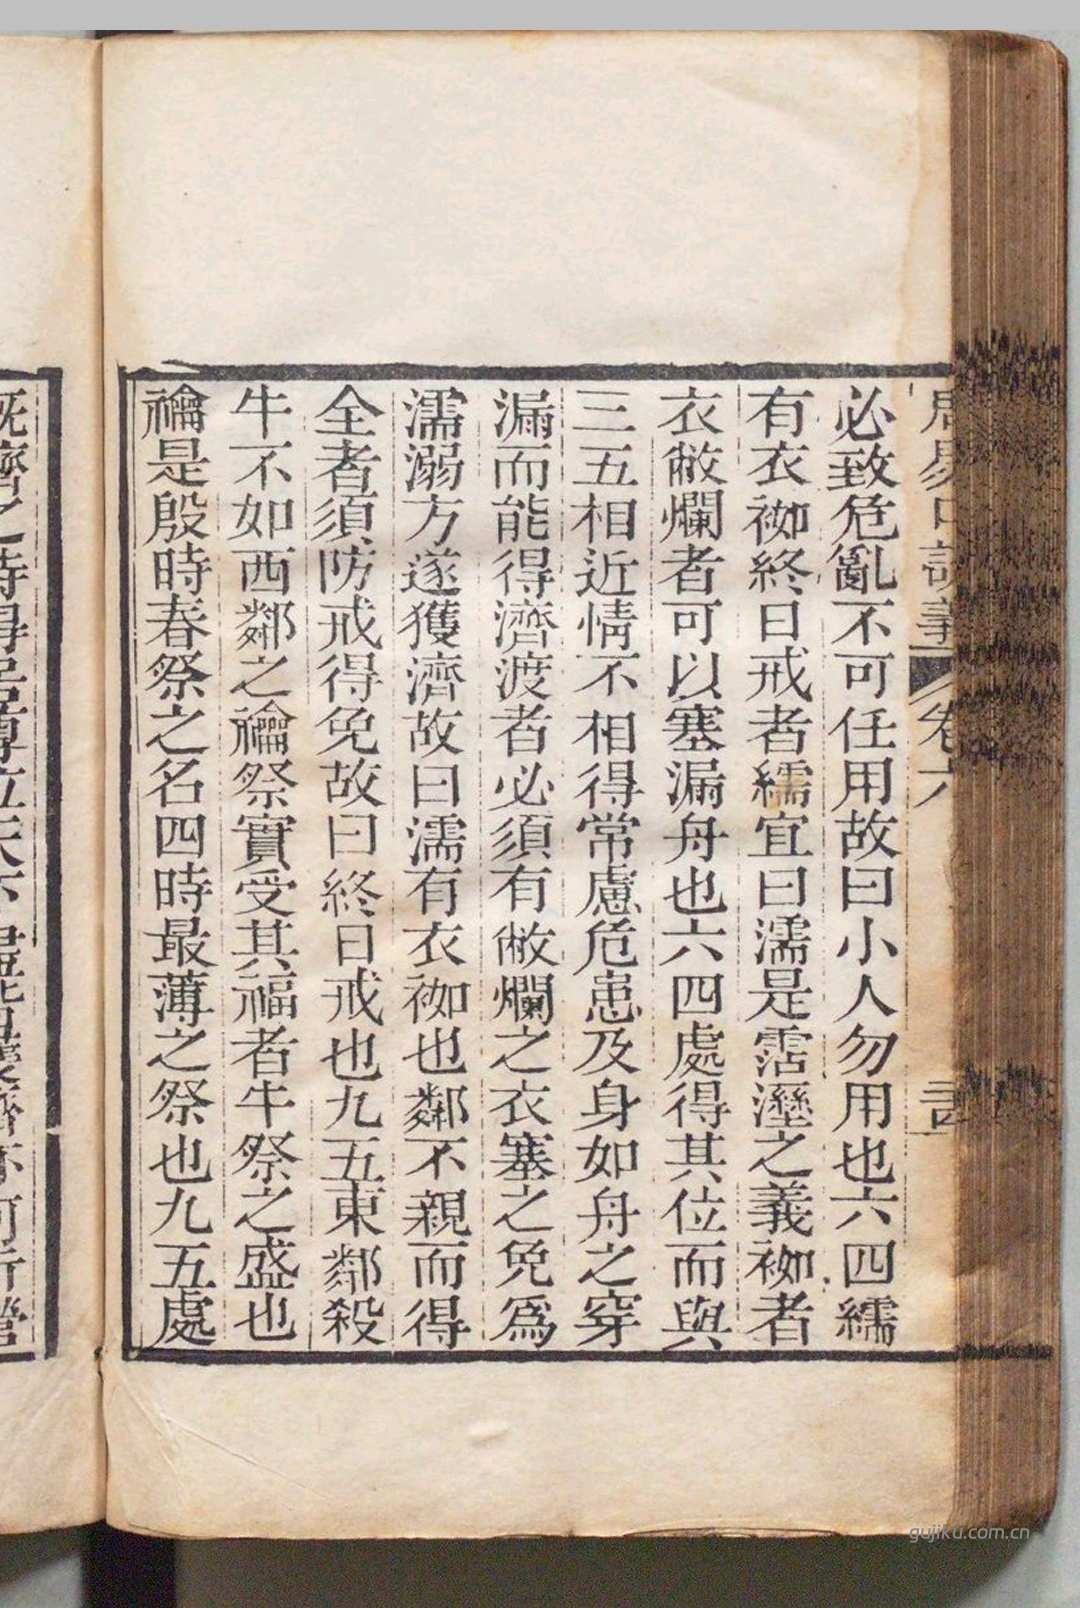 必致危亂不可任用故曰小人勿用也六四繻
有衣袽終日戒者繻宜曰濡是霑溼之義袽者
衣敝爛者可以塞漏舟也六四處得其位而與
三五相近情不相得常慮危患及身如舟之穿
漏而能得濟渡者必須有敝爛之衣塞之免爲
濡溺方遂獲濟故曰濡有衣袽也鄰不親而得
全者須防戒得免故曰終日戒也九五東鄰殺
牛不如西鄰之禴祭實受其福者牛祭之盛也
禴是殷時春祭之名四時最薄之祭也九五處
周易口訣義 卷六
gujiku.com.cn